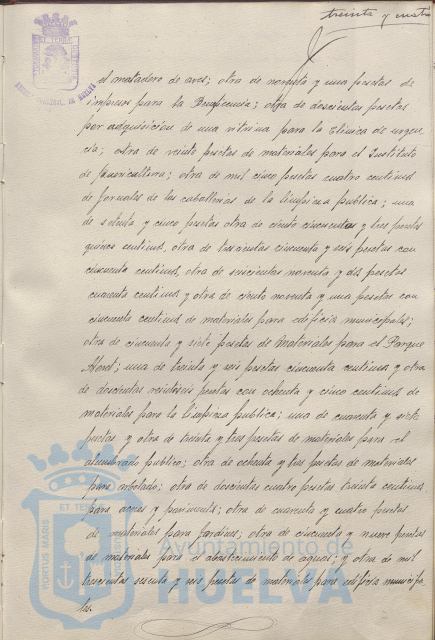 treinta y cuatro
el matadero de aves; otra de noventa y una pesetas de
impresos para la Beneficencia; otra de doscientas pesetas
por adquisición de una vitrina para la Clínica de urgen
cia; otra de veinte pesetas de materiales para el Instituto
de puericultura; otra de mil cinco pesetas cuatro centimos
de jornales de las caballerias de la limpieza publica; una
de setenta y cinco pesetas otra de ciento cincuenta y tres pesetas
quince centimos, otra de trescientas cincuenta y seis pesetas con
cincuenta centimos, otra de seiscientas noventa y dos pesetas
cuarenta centimos y otra de ciento noventa y una pesetas con
cincuenta centimos de materiales para edificios municipales;
otra de cincuenta y siete pesetas de Materiales para el Parque
Moret; una de treinta y seis pesetas cincuenta centimos y otra
de doscientas veintiseis pesetas con ochenta y cinco centimos de
materiales para la limpieza publica; una de cuarenta y siete
pesetas y otra de treinta y tres pesetas de materiales para el
alumbrado publico; otra de ochenta y tres pesetas de materiales
para arbolado; otra de doscientas cuatro pesetas treinta centimos
para aceras y pavimentos; otra de cuarenta y cuatro pesetas
de materiales para Jardines; otra de cincuenta y nueve pesetas
de materiales para el abastecimiento de aguas; y otra de mil
trescientas sesenta y seis pesetas de materiales para edificios municipa
les.
PORTUS MARIS ET TERRAE
Ayuntamiento de
HUELVA